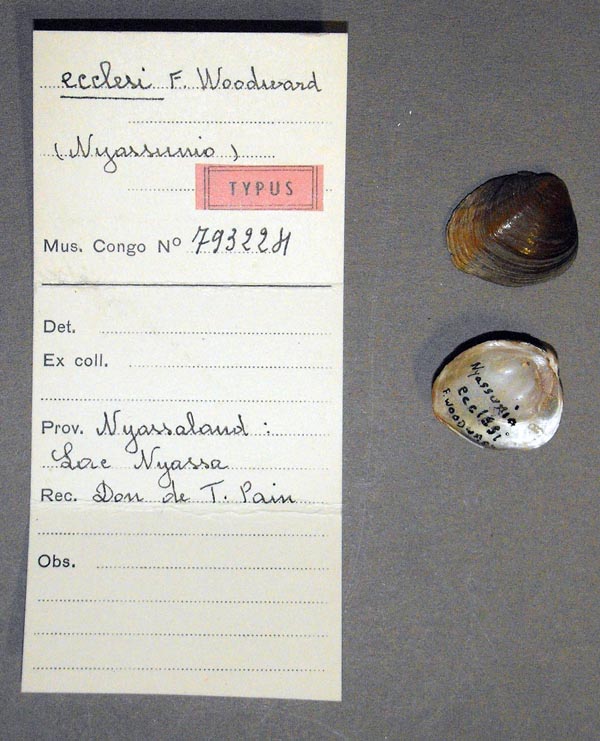 ecclesi F. Woodward
(Nyassunio)
TYPUS
Mus. Congo Nº 793224
Det.
Ex coll.
Prov. Nyassaland :
Lac Nyassa
Rec. Don de T. Pain
Obs.
Nyassunia
ecclesi
F. WOODWAR